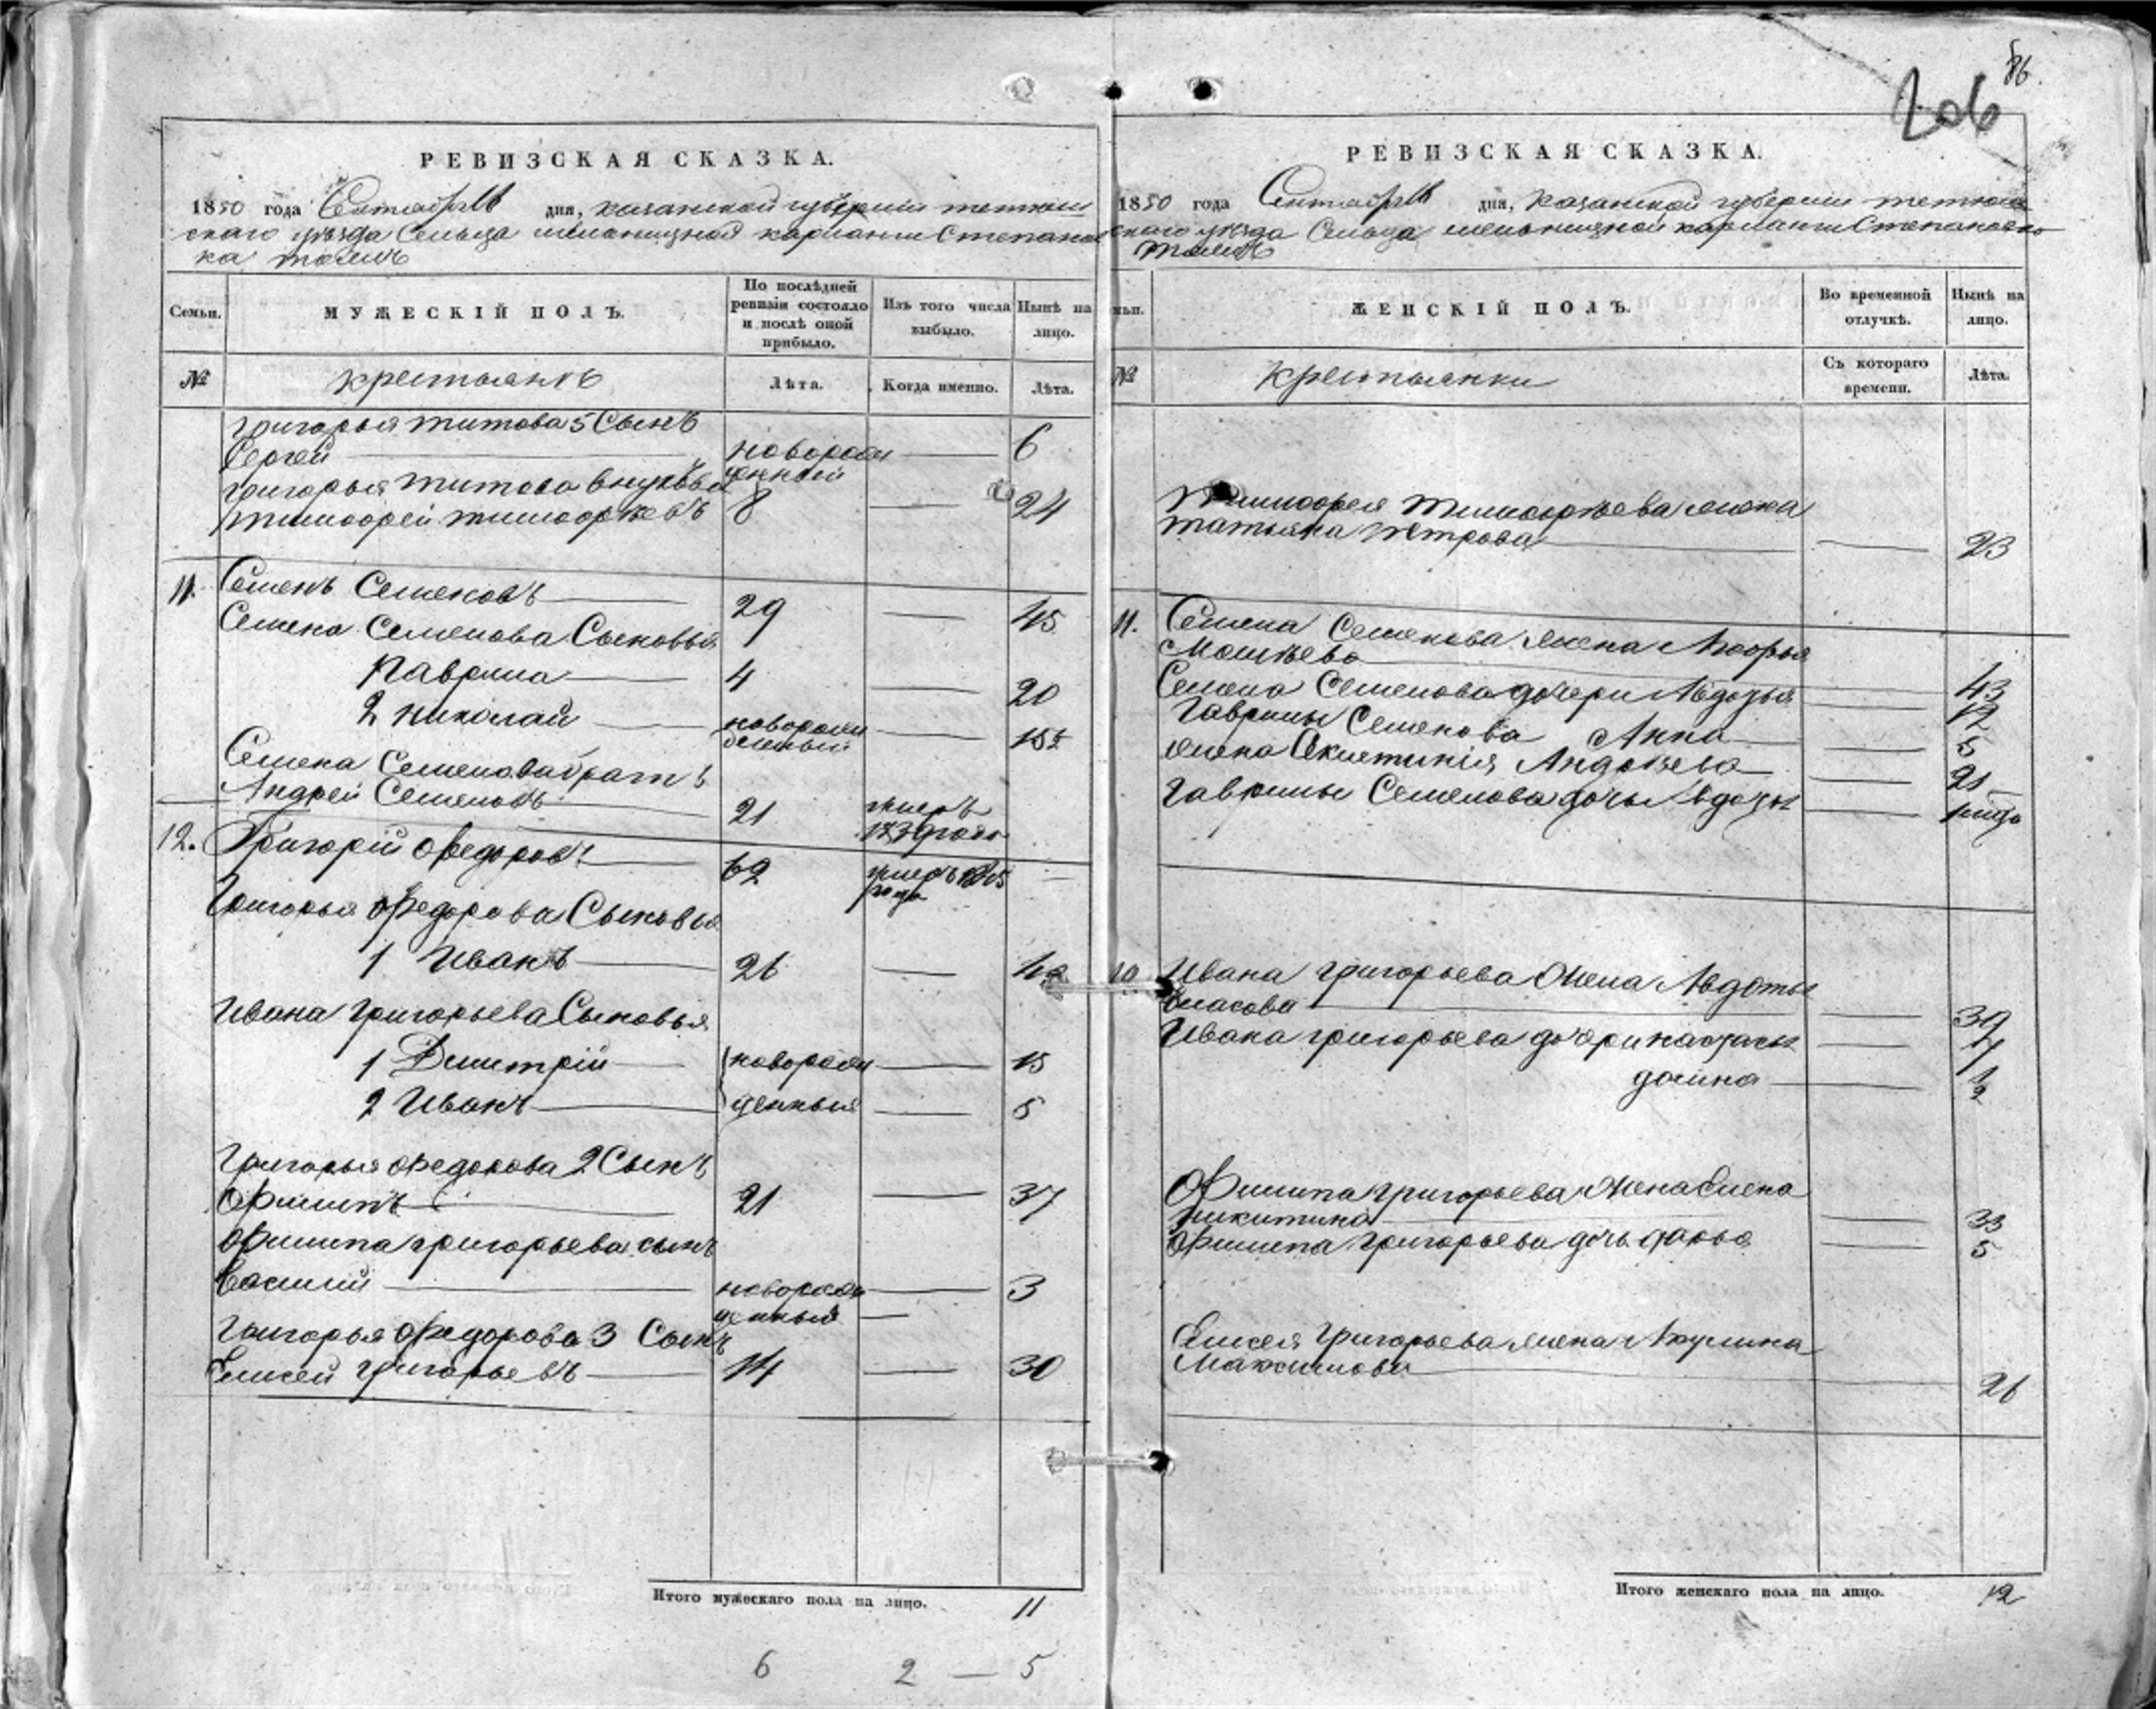 86.
206
РЕВИЗСКАЯ СКАЗКА.
1850 года Сентября дня, казанской губернии тетюш
скаго уѣзда Сельца мельничной
ка тожъ
Семьи.
МУЖЕСКІЙ ПОЛЪ.
По послѣдней ревизіи состояло и послѣ оной прибыло.
Изъ того числа выбыло.
Нынѣ на лицо.
№
крестьянъ
Лѣта.
Когда именно.
Лѣта.
григорья титова 5 Сынъ
Сергей новорож 6
григорья титова внукъ денный
тимофей тимофѣевъ 8 24
11. Семенъ Семеновъ 29 45
Семена Семенова Сыновья
Гаврила 4 20
2 николай новорож 15
денный
Семена Семенова братъ
Андрей Семеновъ 21 умеръ
1839 года
12. Григорій Ѳедоровъ 62 умеръ
года
Григорья Ѳедорова Сыновья
1 Иванъ 26
Ивана григорьева Сыновья
1 Димитрій новорож 15
2 Иванъ денныя 5
Григорья Ѳедорова 2 Сынъ
Филипъ 21 37
Филипа григорьева сынъ
Василій новорож 3
денный
Григорья Ѳедорова 3 Сынъ
Елисей григорьевъ 14 30
Итого мужескаго пола на лицо. 11
6 2 — 5
РЕВИЗСКАЯ СКАЗКА.
1850 года Сентября дня, казанской губерніи тетюш
скаго уѣзда Сельца мельничной
тожъ
мьи.
ЖЕНСКІЙ ПОЛЪ.
Во временной отлучкѣ.
Нынѣ на лицо.
№
крестьянки
Съ котораго времени.
Лѣта.
Тимофея Тимофѣева жена
татьяна Петрова 23
11. Семена Семенова жена
43
Семена Семенова дочери Авдотья 12
Гаврилы Семенова Анна 5
жена Андрѣева 21
Гаврилы Семенова дочь Авдотья
Ивана григорьева жена Авдотья
Власова 39
Ивана григорьева дочери
Филипа григорьева жена Елена
никитина 33
Филипа григорьева дочь дарья 5
Елисея григорьева жена Акулина
Максимова 26
Итого женскаго пола на лицо. 12